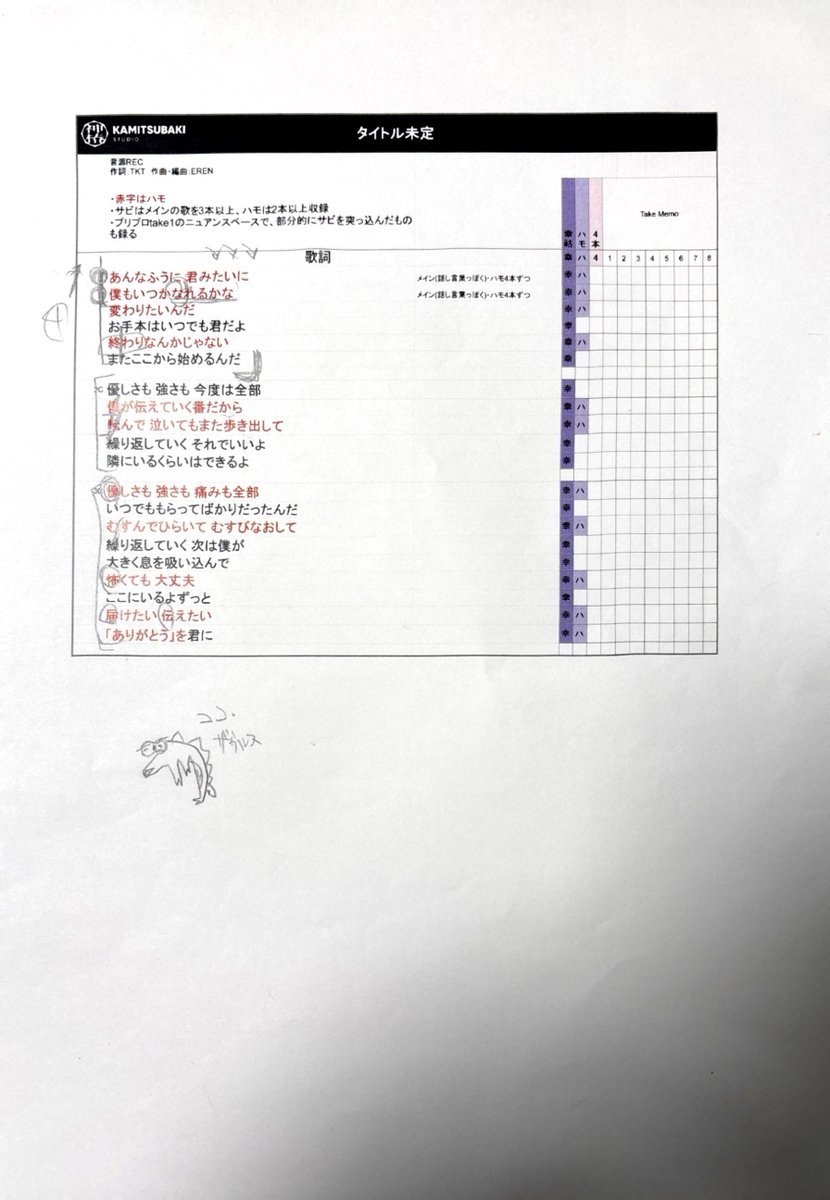 KAMITSUBAKI STUDIO
タイトル未定
音源REC
作詞.TKT 作曲・編曲.EREN
・赤字はハモ
・サビはメインの歌を3本以上、ハモは2本以上収録
・プリプロtake1のニュアンスベースで、部分的にサビを突っ込んだものも録る
幸祜 ハモ 4本 Take Memo
歌詞 幸 ハ 4 1 2 3 4 5 6 7 8
あんなふうに 君みたいに メイン(話し言葉っぽく)・ハモ4本ずつ 幸 ハ
僕もいつかなれるかな メイン(話し言葉っぽく)・ハモ4本ずつ 幸 ハ
変わりたいんだ 幸 ハ
お手本はいつでも君だよ 幸
終わりなんかじゃない 幸 ハ
またここから始めるんだ 幸
優しさも 強さも 今度は全部 幸
僕が伝えていく番だから 幸 ハ
転んで 泣いてもまた歩き出して 幸 ハ
繰り返していく それでいいよ 幸
隣にいるくらいはできるよ 幸
優しさも 強さも 痛みも全部 幸 ハ
いつでももらってばかりだったんだ 幸
むすんでひらいて むすびなおして 幸 ハ
繰り返していく 次は僕が 幸
大きく息を吸い込んで 幸
怖くても 大丈夫 幸 ハ
ここにいるよずっと 幸
届けたい 伝えたい 幸 ハ
「ありがとう」を君に 幸 ハ
ココ.
ザウルス